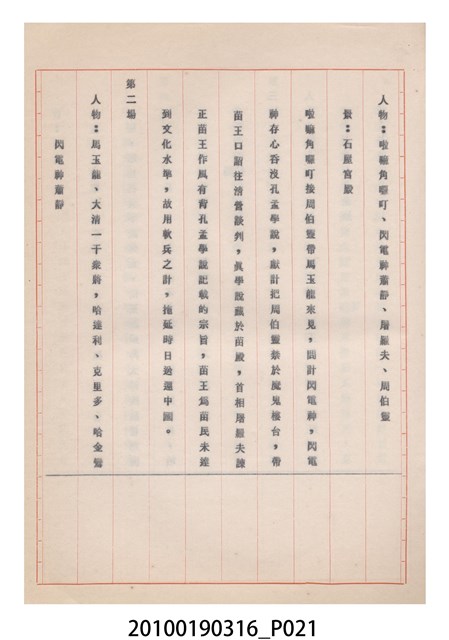 人物：啦嘛角嘟叮、閃電神蕭靜、屠羅夫、周伯籃
景：石屋宮殿
啦嘛角嘟叮接周伯籃帶馬玉龍來見，問計閃電神，閃電
神存心吞沒孔孟學說，献計把周伯籃禁於魔鬼樓台，帶
苗王口詔往清營談判，眞學說藏於苗殿，首相屠羅夫諫
正苗王作風有背孔孟學說記載的宗旨，苗王爲苗民未達
到文化水準，故用軟兵之計，拖延時日逃運中國。
第二場
人物：馬玉龍、大清一干衆將，哈達利、克里多、哈金鶯
閃電神蕭靜
20100190316_P021